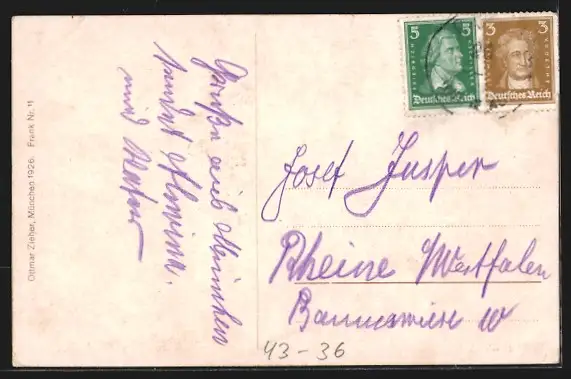 Grüße aus München
sendet Maria
und Vater
Ottmar Zieher, München 1926. Frank Nr. 11
5 5
FRIEDRICH
Deutsches Reich
3 3
Deutsches Reich
Josef Jasper
Rheine Westfalen
43-36